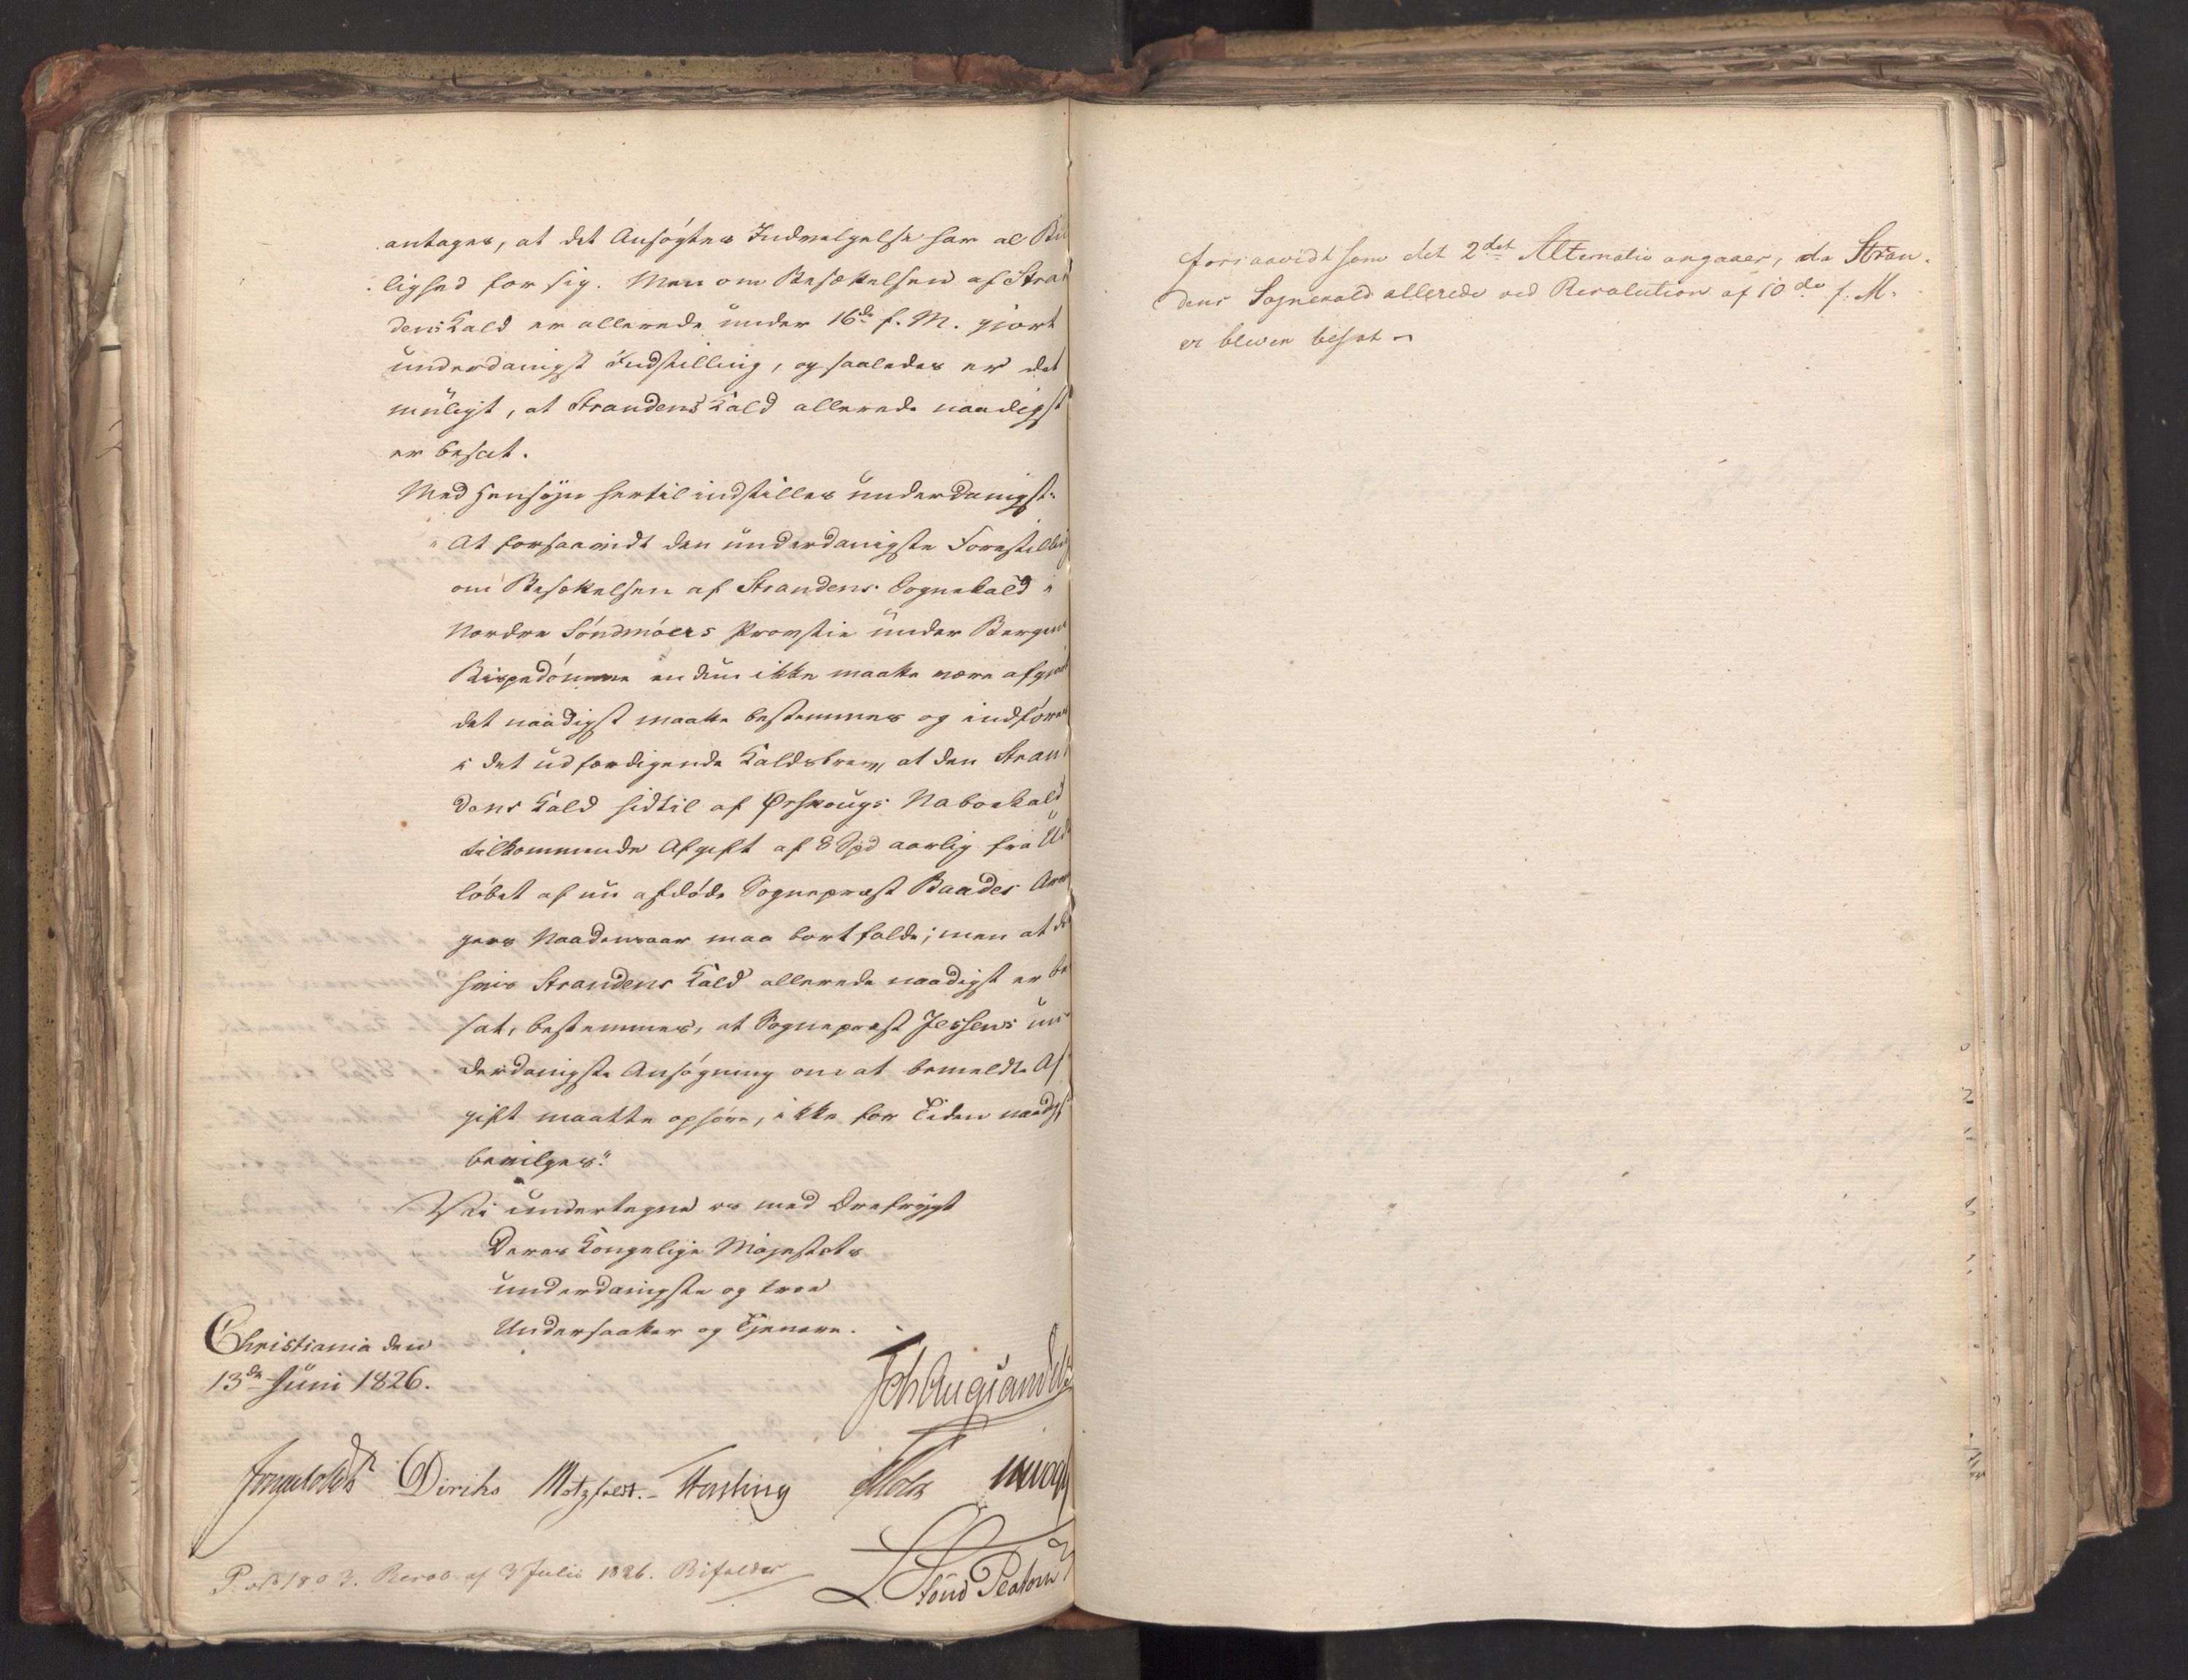 antages, at det Ansøgtes Indvelgelse har al Bil
lighed for sig. Men om Besættelsen af Stran
dens Kald er allerede under 16de f. M. gjort
underdanigst Indstilling, og saaledes er det
müligt, at Strandens Kald allerede naadigst
er besat.
Med Hensyn hertil indstilles underdanigst:
"At forsaavidt den underdanigste Forestilling
om Besættelsen af Strandens Sognekald i
Nordre Söndmöers Provstie under Bergens
Bispedömme endnu ikke maatte være afgjort
det naadigst maatte bestemmes og indföres
i det udfærdigende Kaldsbrev, at den Stran
dens Kald hidtil af Ørskougs Nabokald
tilkommende Afgift af 8 Spd aarlig fra Ud
löbet af nu afdöde Sognepræst Baades Arvin
gers Naadensaar maa bortfalde; men at det
hvis Strandens Kald allerede naadigst er be
sat, bestemmes, at Sognepræst Jessens un
derdanigste Ansøgning om at bemeldte Af
gift maatte ophöre, ikke for Tiden naadigst
bevilges."
Vi undertegne os med Ærefrygt
Deres Kongelige Majestæts
underdanigste og troe
Undersaatter og Tjenere.
Christiania den
13de Juni 1826.
Joh Aug Sandels
Diriks Motzfeldt. Hesting
P. No 1803. Resol. af 3 Julii 1826. Bifaldes
forsaavidt som det 2det Alternativ angaaer, da Stran-
dens Sognekald allerede ved Resolution af 10de f. M.
er bleven besat